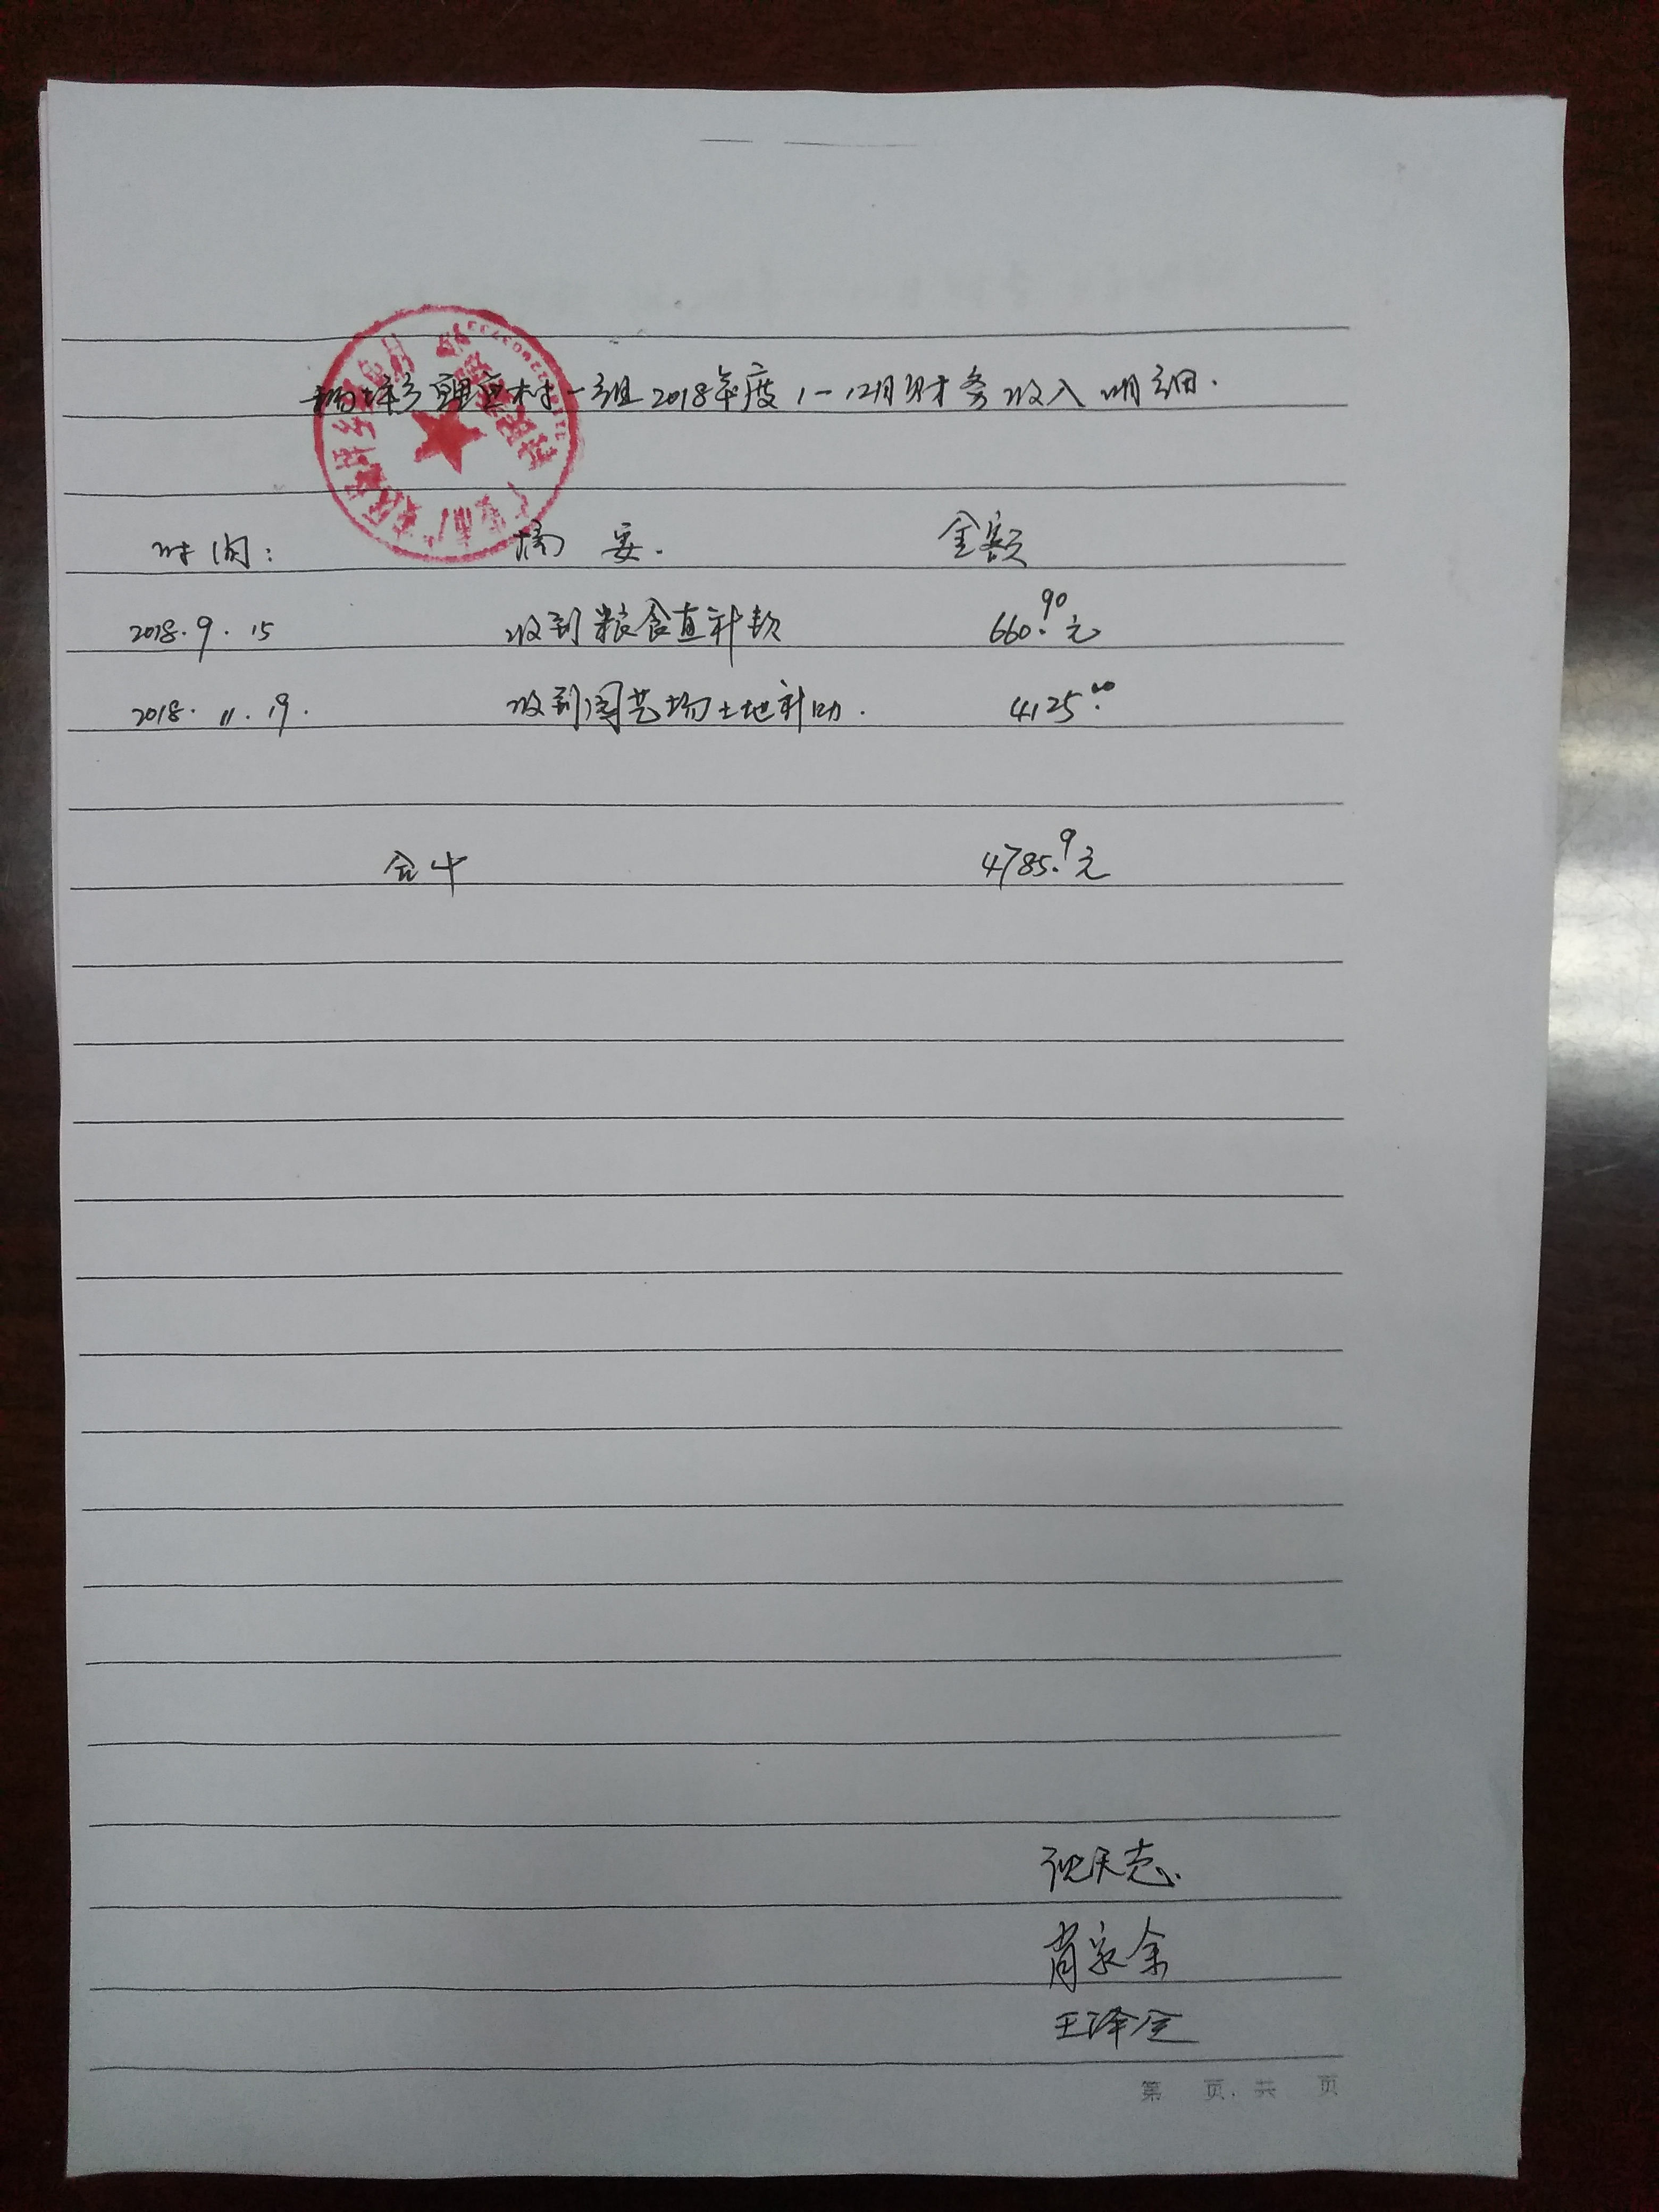 村一组2018年度1-12月财务收入明细.
时间: 摘要. 金额
2018.9.15 收到粮食直补款 660.90元
2018.11.19. 收到园艺场土地补助. 4125.00
合计 4785.9元
肖家余
王泽全
第 页.共 页